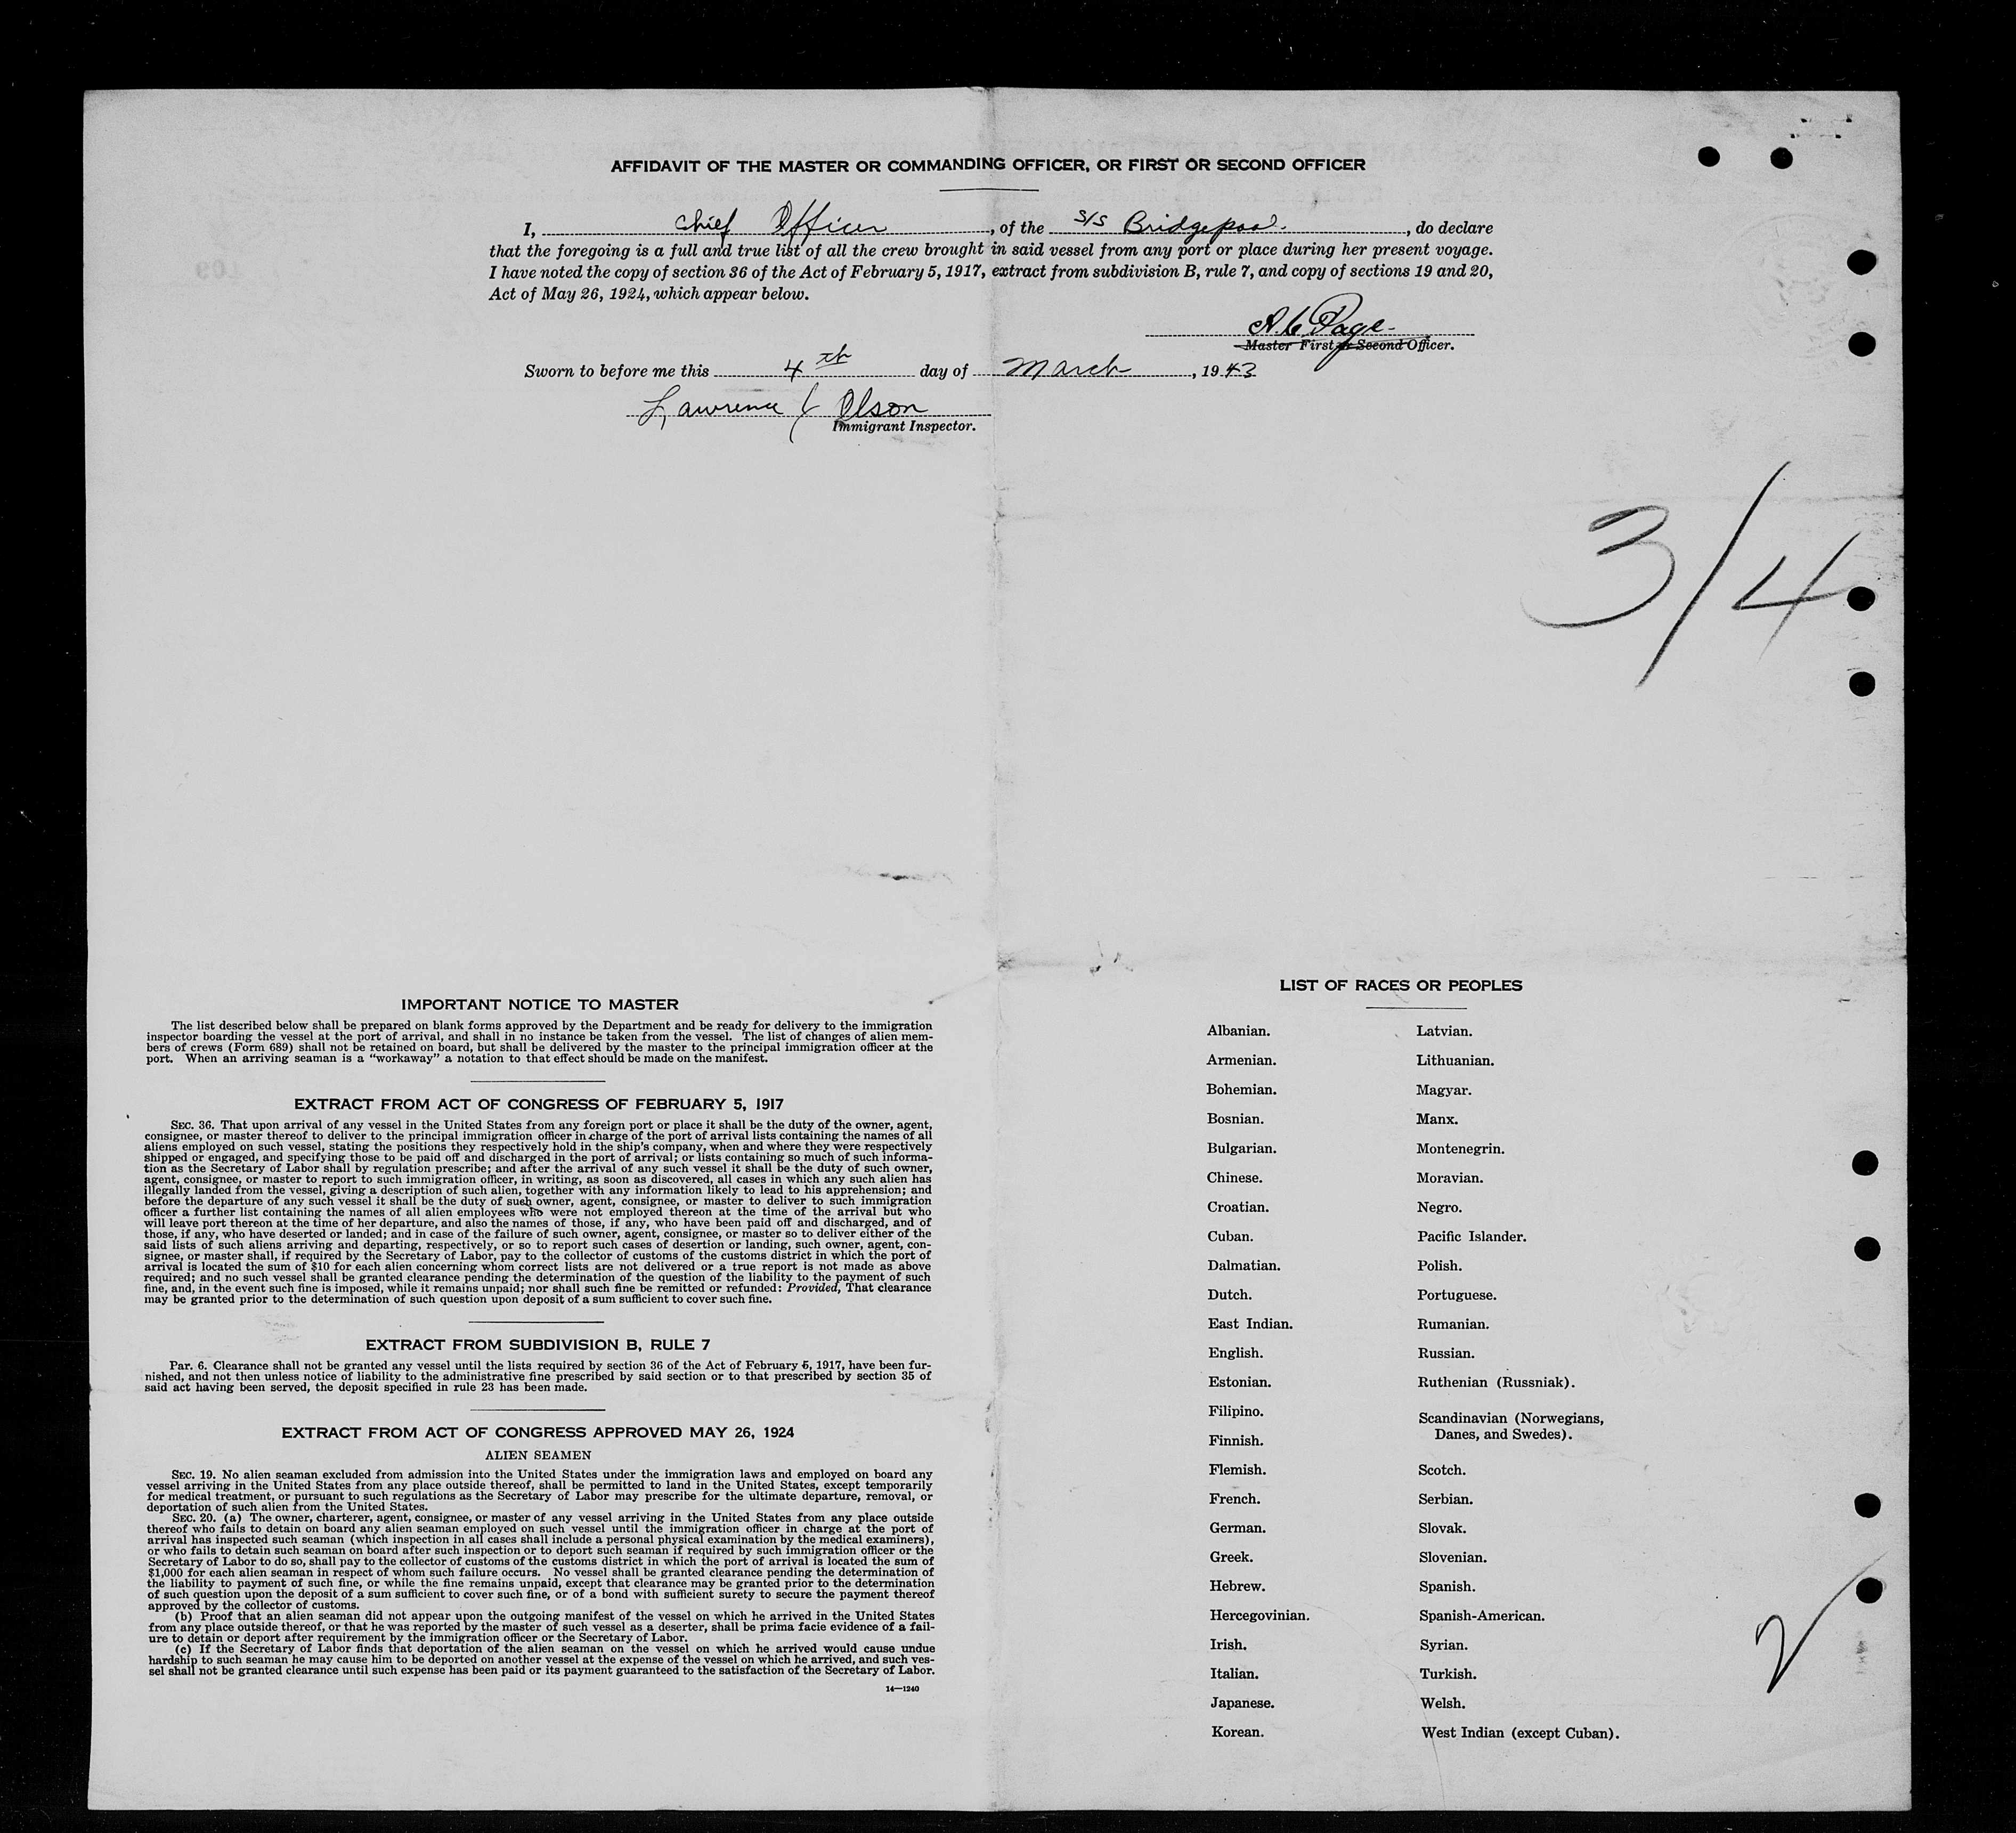 AFFIDAVIT OF THE MASTER OR COMMANDING OFFICER, OR FIRST OR SECOND OFFICER
I, Chief Officer, of the S/S Bridgepool, do declare
that the foregoing is a full and true list of all the crew brought in said vessel from any port or place during her present voyage.
I have noted the copy of section 36 of the Act of February 5, 1917, extract from subdivision B, rule 7, and copy of sections 19 and 20,
Act of May 26, 1924, which appear below.
Page
Master First or Second Officer.
Sworn to before me this 4th day of March, 1943
Lawrence Olson
Immigrant Inspector.
3/4
IMPORTANT NOTICE TO MASTER
The list described below shall be prepared on blank forms approved by the Department and be ready for delivery to the immigration
inspector boarding the vessel at the port of arrival, and shall in no instance be taken from the vessel. The list of changes of alien mem-
bers of crews (Form 689) shall not be retained on board, but shall be delivered by the master to the principal immigration officer at the
port. When an arriving seaman is a "workaway" a notation to that effect should be made on the manifest.
EXTRACT FROM ACT OF CONGRESS OF FEBRUARY 5, 1917
SEC. 36. That upon arrival of any vessel in the United States from any foreign port or place it shall be the duty of the owner, agent,
consignee, or master thereof to deliver to the principal immigration officer in charge of the port of arrival lists containing the names of all
aliens employed on such vessel, stating the positions they respectively hold in the ship's company, when and where they were respectively
shipped or engaged, and specifying those to be paid off and discharged in the port of arrival; or lists containing so much of such informa-
tion as the Secretary of Labor shall by regulation prescribe; and after the arrival of any such vessel it shall be the duty of such owner,
agent, consignee, or master to report to such immigration officer, in writing, as soon as discovered, all cases in which any such alien has
illegally landed from the vessel, giving a description of such alien, together with any information likely to lead to his apprehension; and
before the departure of any such vessel it shall be the duty of such owner, agent, consignee, or master to deliver to such immigration
officer a further list containing the names of all alien employees who were not employed thereon at the time of the arrival but who
will leave port thereon at the time of her departure, and also the names of those, if any, who have been paid off and discharged, and of
those, if any, who have deserted or landed; and in case of the failure of such owner, agent, consignee, or master so to deliver either of the
said lists of such aliens arriving and departing, respectively, or so to report such cases of desertion or landing, such owner, agent, con-
signee, or master shall, if required by the Secretary of Labor, pay to the collector of customs of the customs district in which the port of
arrival is located the sum of $10 for each alien concerning whom correct lists are not delivered or a true report is not made as above
required; and no such vessel shall be granted clearance pending the determination of the question of the liability to the payment of such
fine, and, in the event such fine is imposed, while it remains unpaid; nor shall such fine be remitted or refunded: Provided, That clearance
may be granted prior to the determination of such question upon deposit of a sum sufficient to cover such fine.
EXTRACT FROM SUBDIVISION B, RULE 7
Par. 6. Clearance shall not be granted any vessel until the lists required by section 36 of the Act of February 5, 1917, have been fur-
nished, and not then unless notice of liability to the administrative fine prescribed by said section or to that prescribed by section 35 of
said act having been served, the deposit specified in rule 23 has been made.
EXTRACT FROM ACT OF CONGRESS APPROVED MAY 26, 1924
ALIEN SEAMEN
SEC. 19. No alien seaman excluded from admission into the United States under the immigration laws and employed on board any
vessel arriving in the United States from any place outside thereof, shall be permitted to land in the United States, except temporarily
for medical treatment, or pursuant to such regulations as the Secretary of Labor may prescribe for the ultimate departure, removal, or
deportation of such alien from the United States.
SEC. 20. (a) The owner, charterer, agent, consignee, or master of any vessel arriving in the United States from any place outside
thereof who fails to detain on board any alien seaman employed on such vessel until the immigration officer in charge at the port of
arrival has inspected such seaman (which inspection in all cases shall include a personal physical examination by the medical examiners),
or who fails to detain such seaman on board after such inspection or to deport such seaman if required by such immigration officer or the
Secretary of Labor to do so, shall pay to the collector of customs of the customs district in which the port of arrival is located the sum of
$1,000 for each alien seaman in respect of whom such failure occurs. No vessel shall be granted clearance pending the determination of
the liability to payment of such fine, or while the fine remains unpaid, except that clearance may be granted prior to the determination
of such question upon the deposit of a sum sufficient to cover such fine, or of a bond with sufficient surety to secure the payment thereof
approved by the collector of customs.
(b) Proof that an alien seaman did not appear upon the outgoing manifest of the vessel on which he arrived in the United States
from any place outside thereof, or that he was reported by the master of such vessel as a deserter, shall be prima facie evidence of a fail-
ure to detain or deport after requirement by the immigration officer or the Secretary of Labor.
(c) If the Secretary of Labor finds that deportation of the alien seaman on the vessel on which he arrived would cause undue
hardship to such seaman he may cause him to be deported on another vessel at the expense of the vessel on which he arrived, and such ves-
sel shall not be granted clearance until such expense has been paid or its payment guaranteed to the satisfaction of the Secretary of Labor.
14—1240
LIST OF RACES OR PEOPLES
Albanian.
Armenian.
Bohemian.
Bosnian.
Bulgarian.
Chinese.
Croatian.
Cuban.
Dalmatian.
Dutch.
East Indian.
English.
Estonian.
Filipino.
Finnish.
Flemish.
French.
German.
Greek.
Hebrew.
Hercegovinian.
Irish.
Italian.
Japanese.
Korean.
Latvian.
Lithuanian.
Magyar.
Manx.
Montenegrin.
Moravian.
Negro.
Pacific Islander.
Polish.
Portuguese.
Rumanian.
Russian.
Ruthenian (Russniak).
Scandinavian (Norwegians,
Danes, and Swedes).
Scotch.
Serbian.
Slovak.
Slovenian.
Spanish.
Spanish-American.
Syrian.
Turkish.
Welsh.
West Indian (except Cuban).